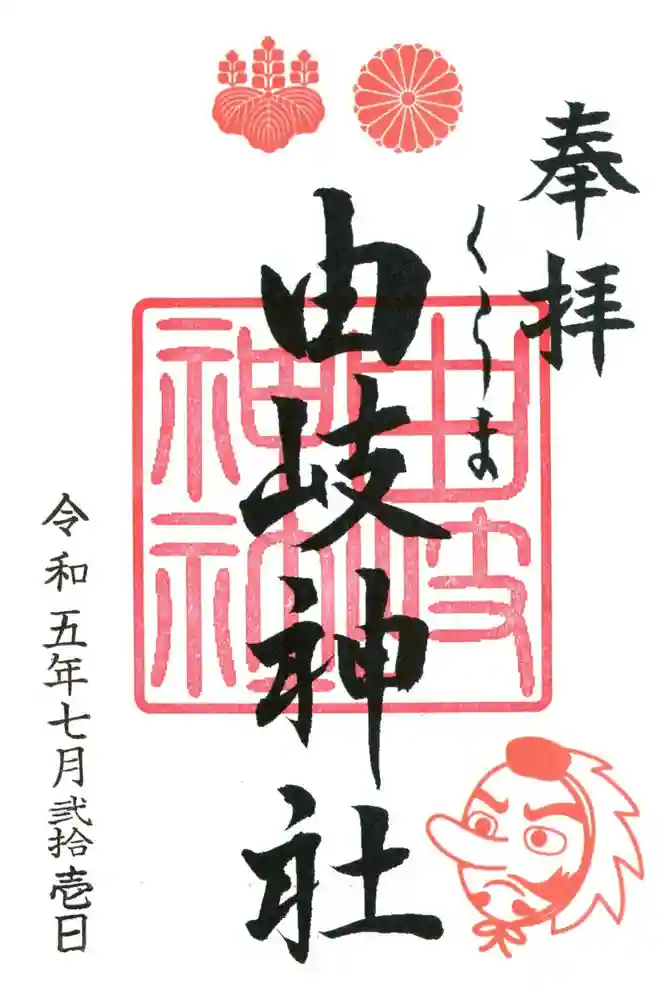 奉拝
くらま
由岐神社
由岐神社
令和五年七月弐拾壱日